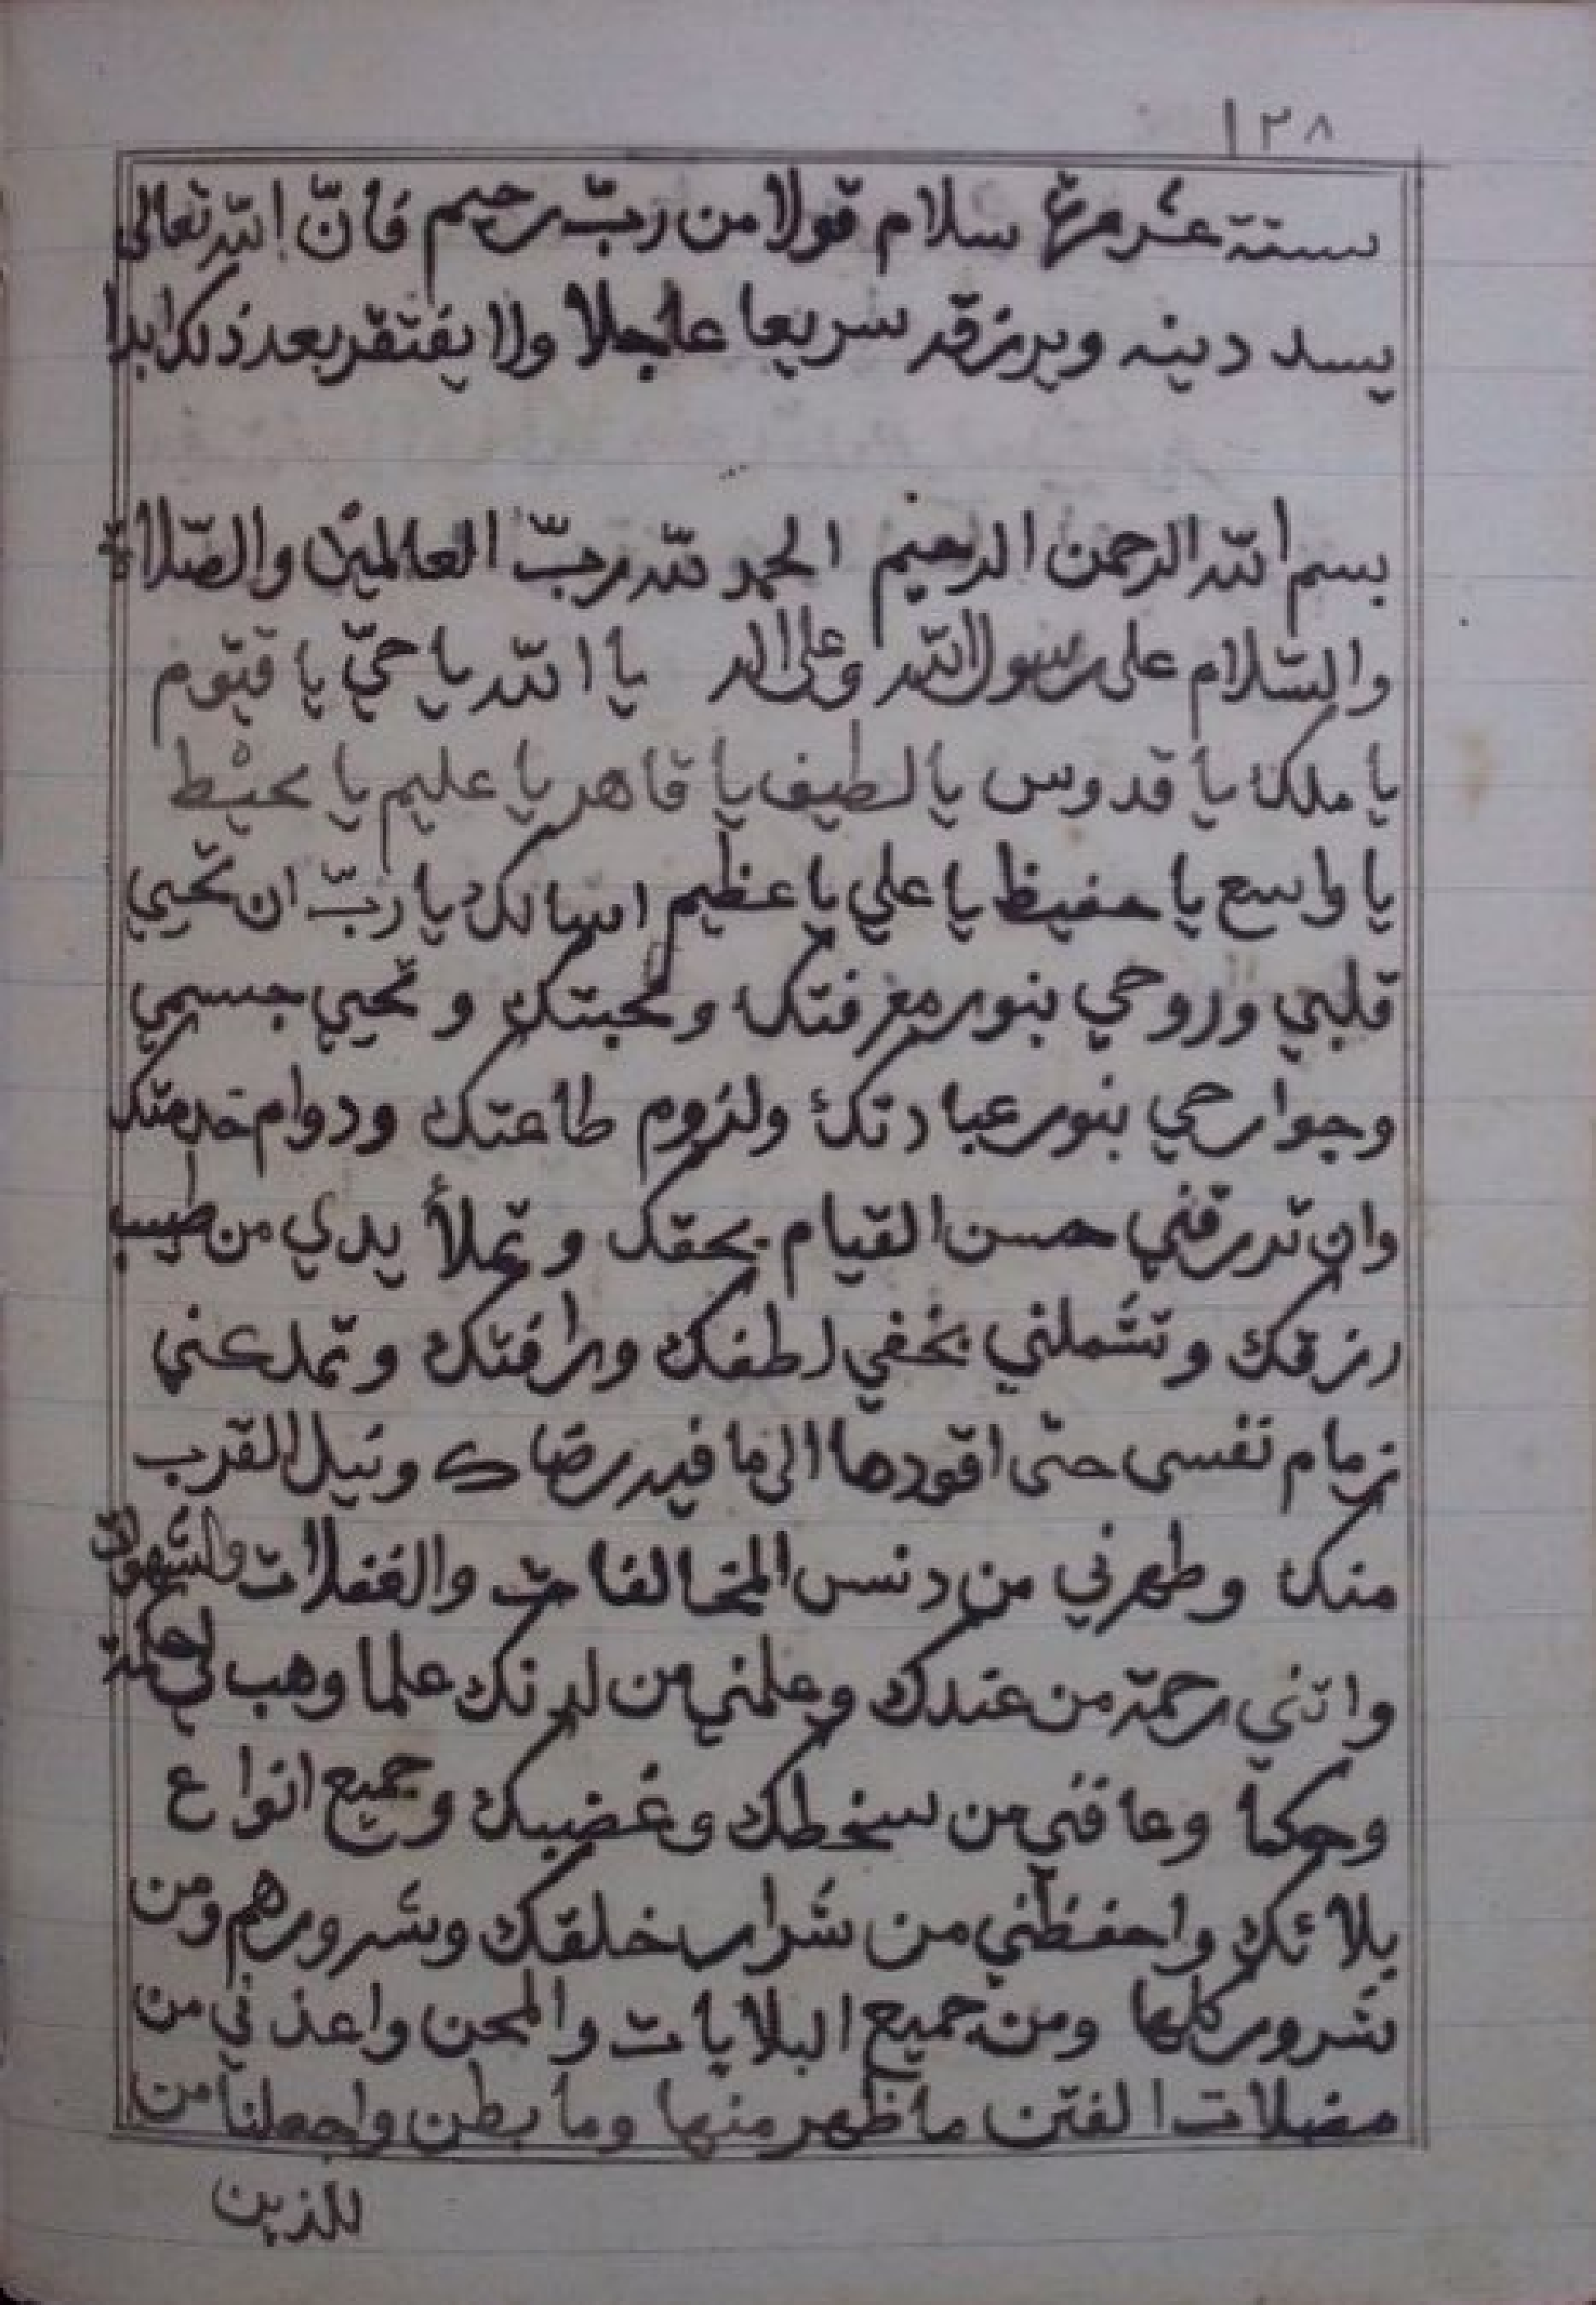 ١٢٨
ستة عشر مرة سلام قولا من ربّ رحيم فانّ الله تعالى
يسد دينه ويرزقه سريعا عاجلا ولا يفتقر بعد ذلك ابدا
بسم الله الرحمن الرحيم الحمد لله ربّ العالمين والصّلاة
والسّلام على رسول الله وعلى اله يا الله يا حيّ يا قيّوم
يا ملك يا قدوس يا لطيف يا قاهر يا عليم يا محيْط
يا واسع يا حفيظ يا علي يا عظيم اسالك يا ربّ ان تحيي
قلبي وروحي بنور معرفتك ومحبتك و تحيي جسمي
وجوارحي بنور عبادتك ولزوم طاعتك ودوام خدمتك
وان ترزقني حسن القيام بحقك و تملأ يدي من طيب
رزقك وتشملني بخفي لطفك ورافتك و تملكني
زمام نفسى حتى اقودها الى ما فيه رضاك ونيل القرب
منك وطهرني من دنس المخالفات والغفلات والشهوات
واتني رحمة من عندك وعلمني من لدنك علما وهب لي حكمة
وحكما وعافني من سخطك وغضبك وجميع انواع
بلائك واحفظني من شرار خلقك وشرورهم ومن
شرور كلها ومن جميع البلايات والمحن واعذني من
مضلات الفتن ما ظهر منها وما بطن واجعلنا من
للذين